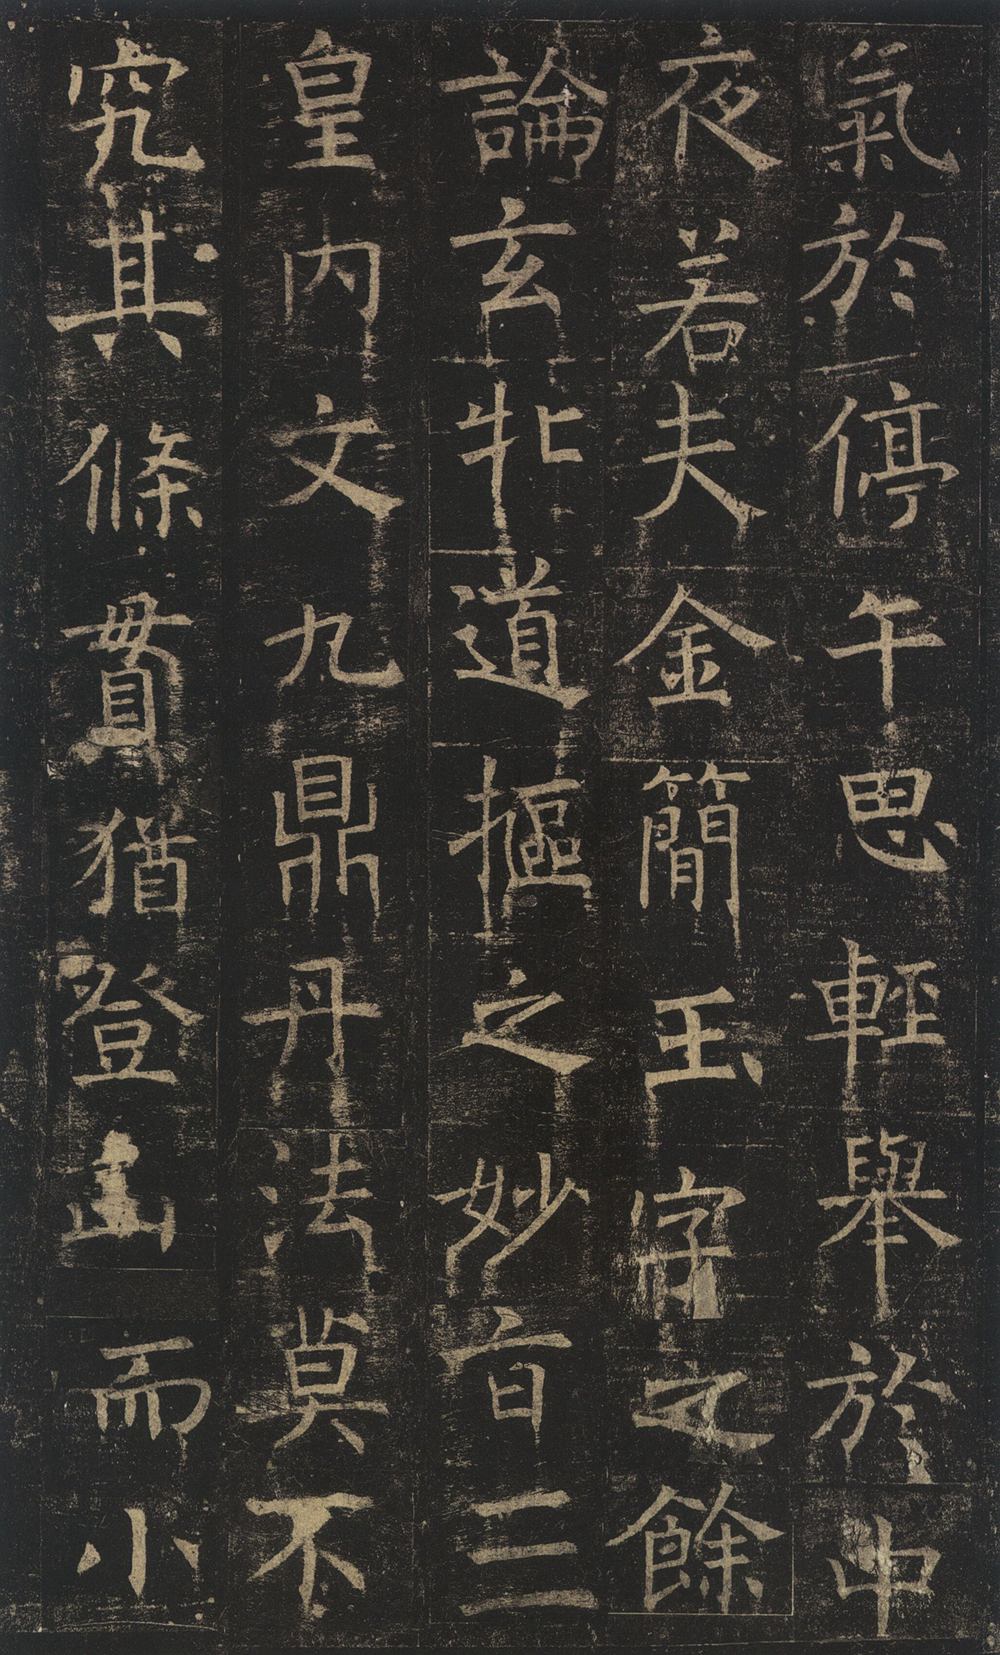 氣於停午思輕舉於中
夜若夫金簡玉字之餘
論玄牝道摳之妙旨三
皇内文九鼎丹法莫不
究其條貫猶登山而小